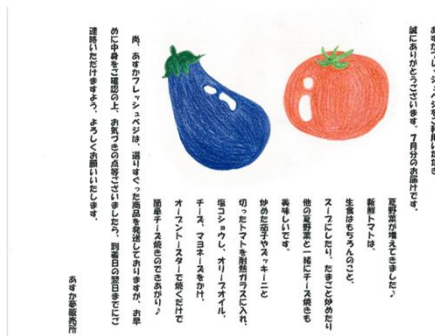 誠にありがとうございます。7月分のお届けです。
夏野菜が増えてきました♪
新鮮トマトは、
生食はもちろんのこと、
スープにしたり、たまごと炒めたり
他の夏野菜と一緒にチーズ焼きも
美味しいです。
炒めた茄子やズッキーニと
切ったトマトを耐熱ガラスに入れ、
塩コショウし、オリーブオイル、
チーズ、マヨネーズをかけ、
オーブントースターで焼くだけで
簡単チーズ焼きのできあがり♪
尚、あすかフレッシュベジは、選りすぐった商品を発送しておりますが、お早
めに中身をご確認の上、お気づきの点等ございましたら、到着日の翌日までにご
連絡いただけますよう、よろしくお願いいたします。
あすか夢販売所